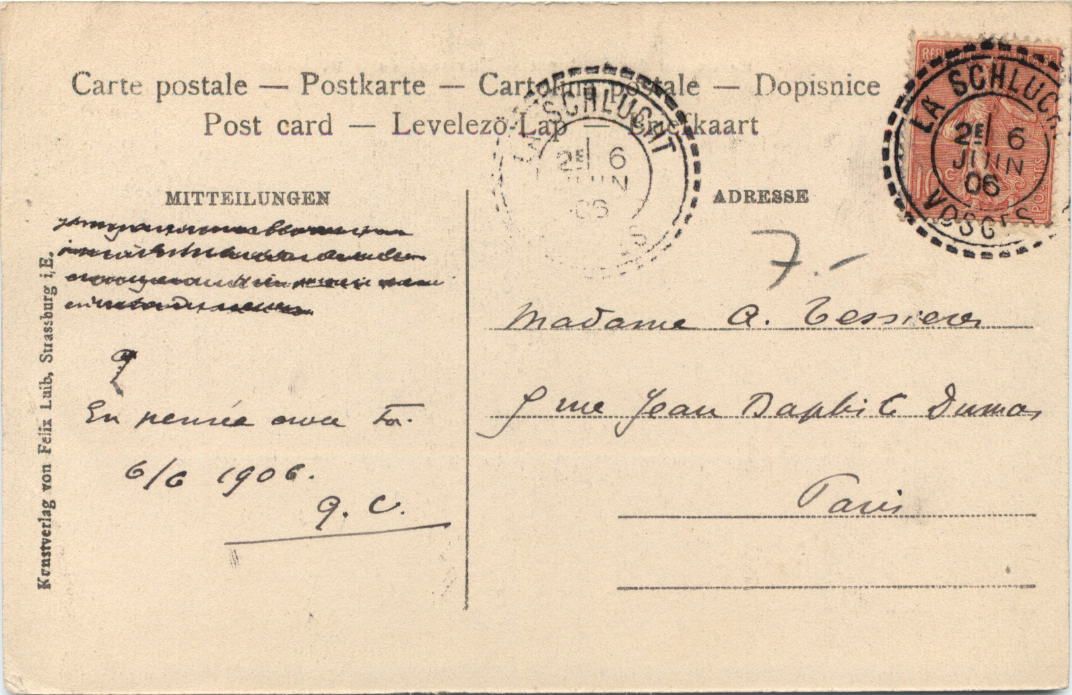 Carte postale — Postkarte — Cartolina postale — Dopisnice
Post card — Levelező-Lap — Briefkaart
LA SCHLUCHT
2E 6
JUIN
06
LA SCHLUCHT
2E 6
JUIN
06
VOSGES
MITTEILUNGEN
En pensée avec
6/6 1906.
ADRESSE
7.-
Madame A. Tessieres
rue Jean Baptiste Dumas
Paris
Kunstverlag von Felix Luib, Strassburg i,E.